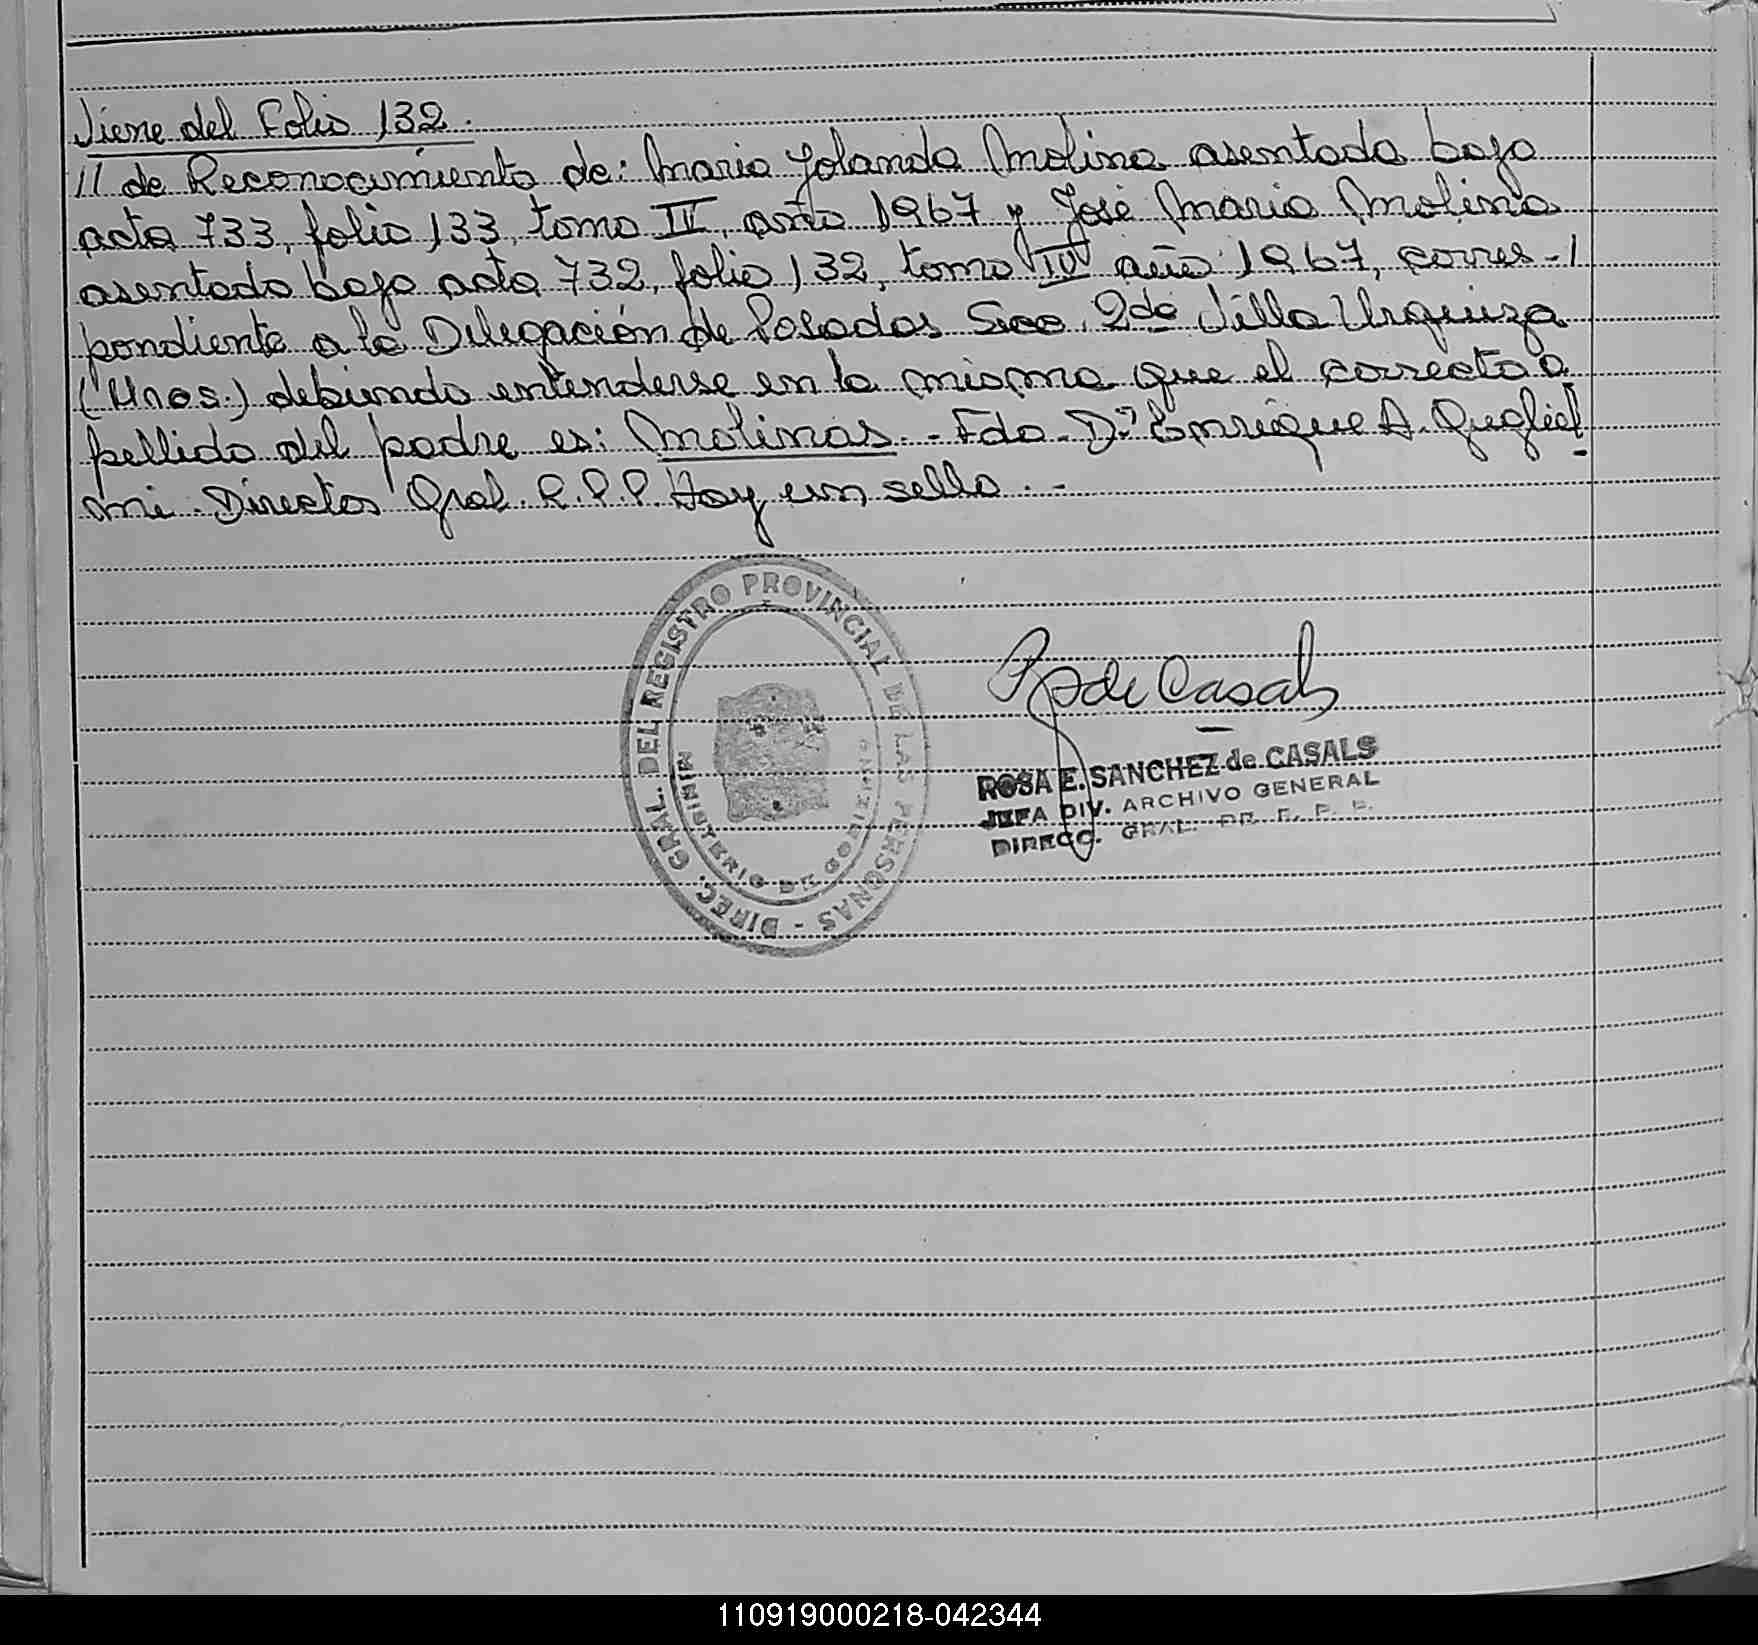 Viene del Folio 132.
// de Reconocimiento de: Maria Yolanda Molina asentada bajo
acta 733, folio 133, tomo IV, año 1967 y José Maria Molina
asentado bajo acta 732, folio 132, tomo IV año 1967, corres-/
pondiente a la Delegación de Posadas Secc. 2da Villa Urquiza
(Mnes.) debiendo entenderse en la misma que el correcto a
pellido del padre es: Molinas.- Fdo. Dr. Enrique A. Gugliel
mi. Director Gral. R.P.P. Hay un sello.-
DIREC. GRAL. DEL REGISTRO PROVINCIAL DE LAS PERSONAS -
MINISTERIO DE GOBIERNO
R S de Casals
ROSA E. SANCHEZ de CASALS
JEFA DIV. ARCHIVO GENERAL
DIRECC. GRAL. DE R. P. P.
110919000218-042344